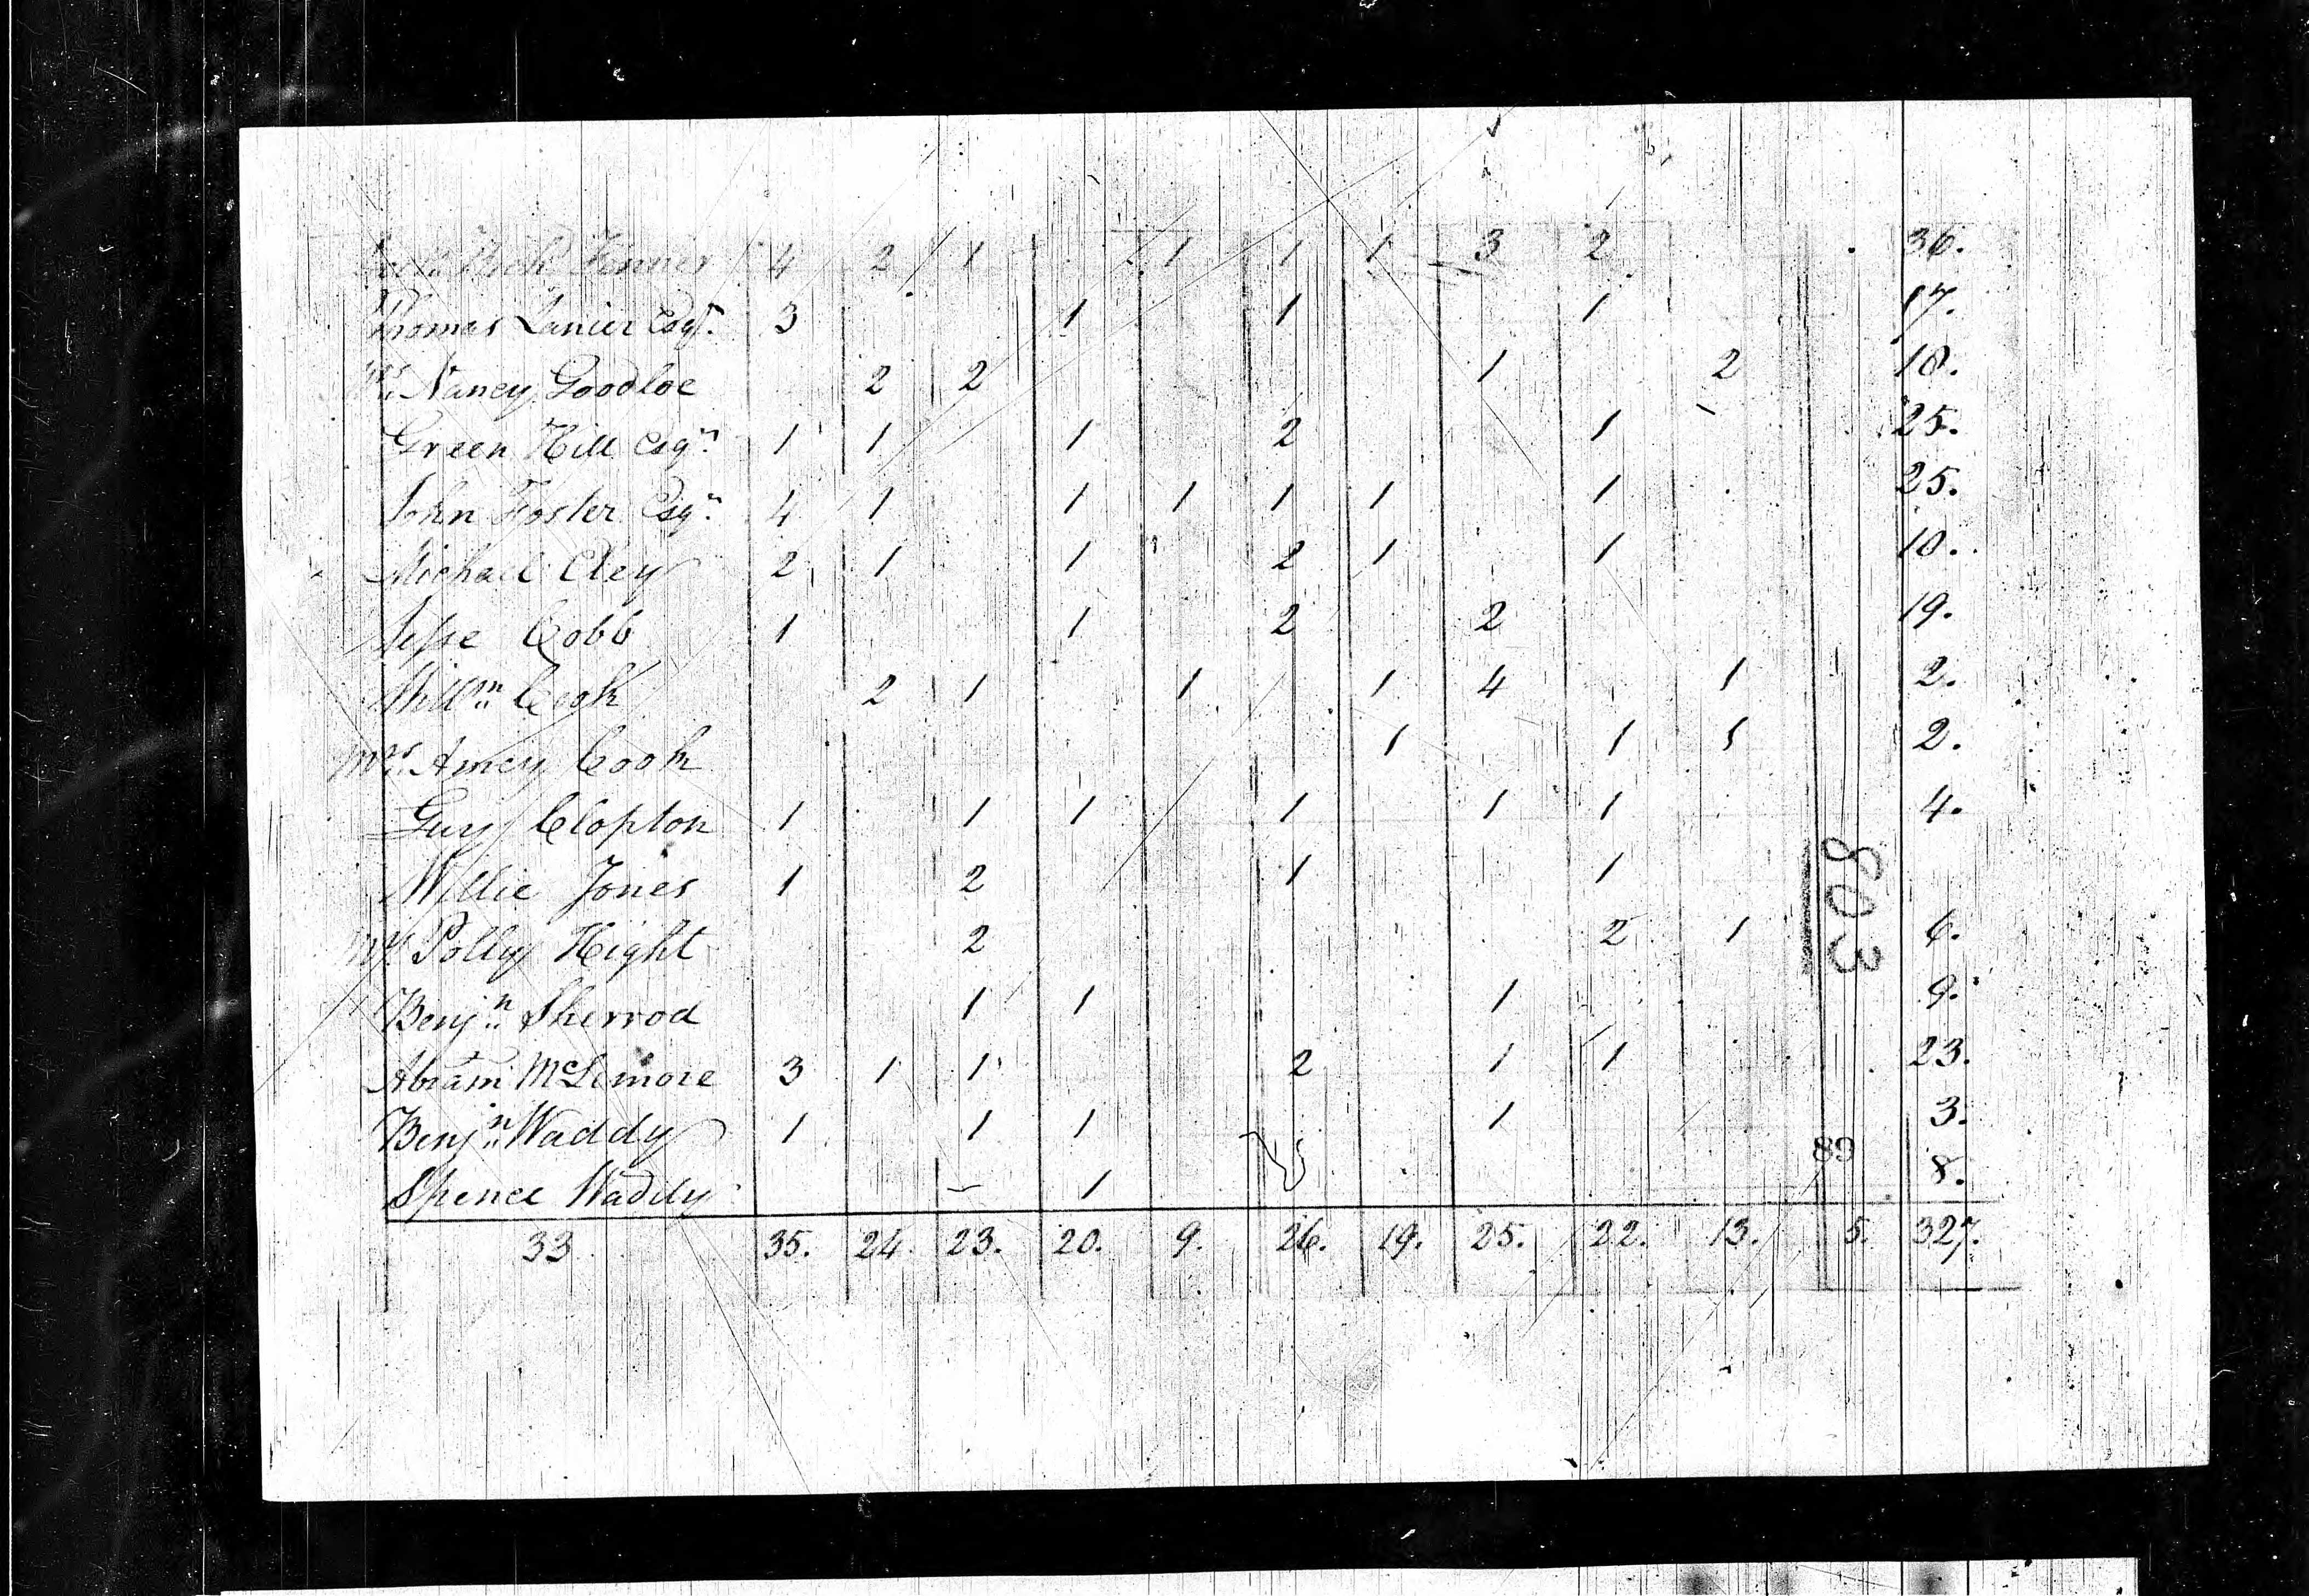 Fenner 4 2 1 1 1 1 3 2 36.
Thomas Lanier Esqr. 3 1 1 1 17.
Mrs. Nancy Goodloe 2 2 1 2 10.
Green Hill Esqr. 1 1 1 2 1 25.
John Foster Esqr. 4 1 1 1 1 1 1 25.
Michael Cley 2 1 1 2 1 1 10.
Jesse Cobb 1 1 2 2 19.
Cook 2 1 1 1 4 1 2.
Mrs. Amey Cook 1 1 1 2.
Guy Clopton 1 1 1 1 1 1 4.
Willie Jones 1 2 1 1
Polly Hight 2 2 1 6.
Benjn. Sherrod 1 1 1 9.
Abram McLemore 3 1 1 2 1 1 23.
Benjn. Waddy 1 1 1 1 3.
Spence Waddy 1 8.
33 35. 24. 23. 20. 9. 26. 19. 25. 22. 13. 5. 327.
803
89